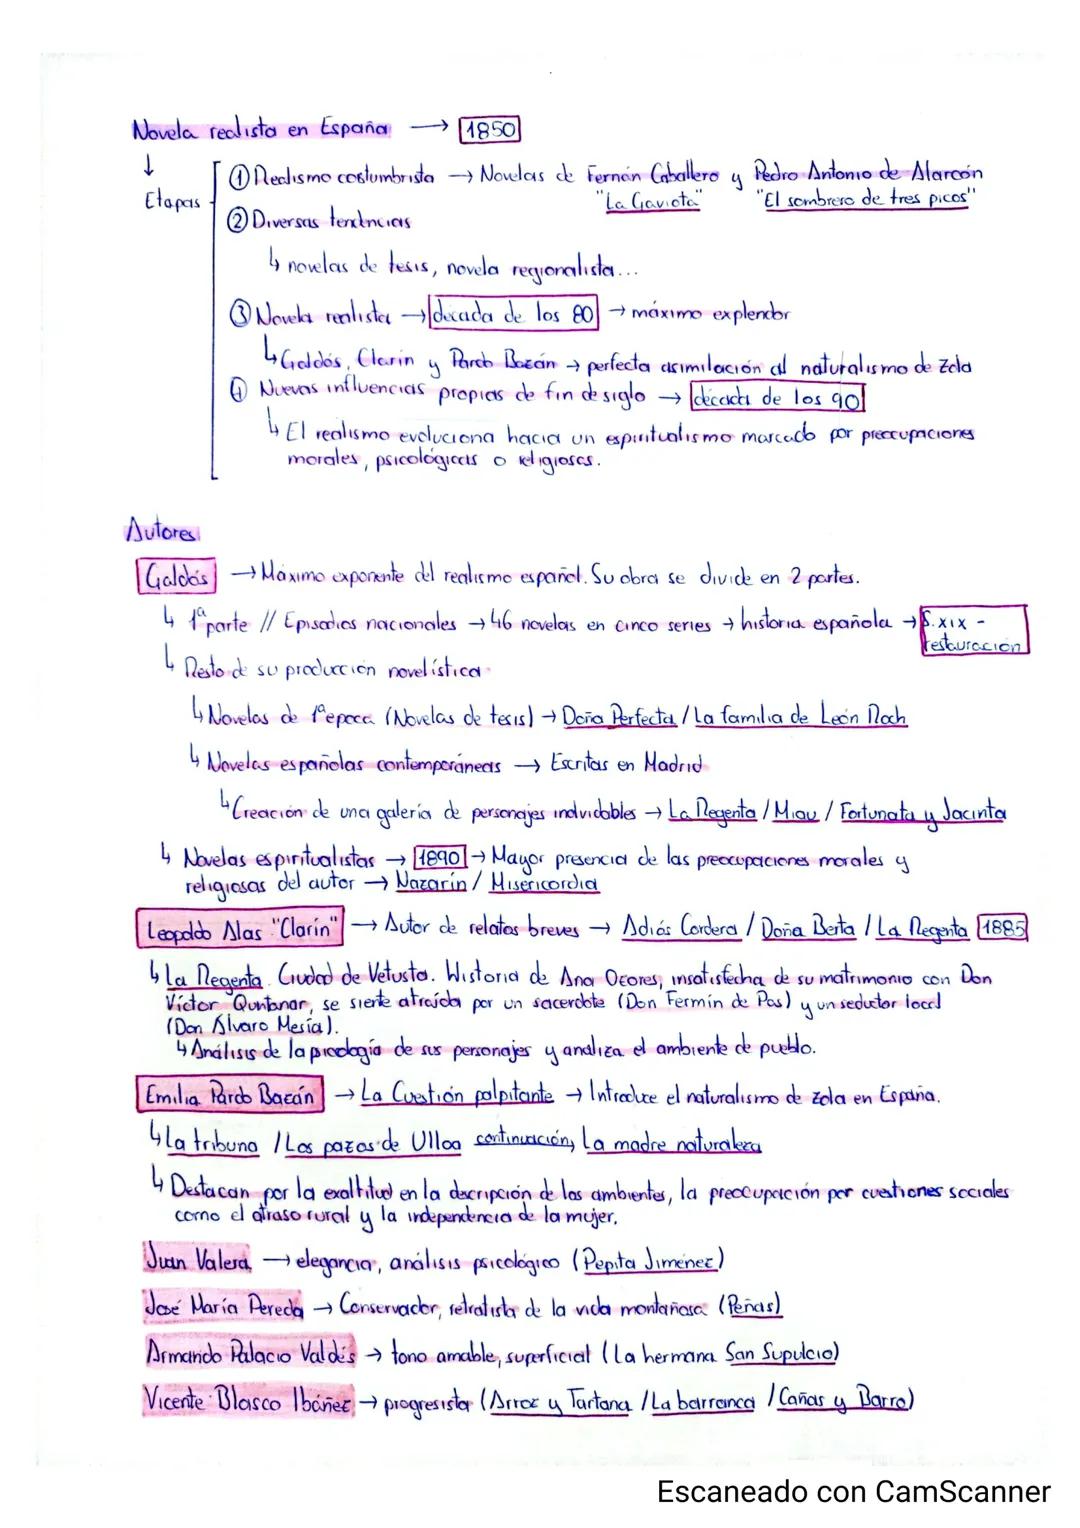 Novela realista en España → 1850
↓
Etapas
① Realismo costumbrista → Novelas de Fernán Caballero y Pedro Antonio de Alarcón
"La Gaviota" "El sombrero de tres picos"
② Diversas tendencias
↳ novelas de tesis, novela regionalista...
③ Novela realista → década de los 80 → máximo explendor
↳ Galdós, Clarín y Pardo Bazán → perfecta asimilación al naturalismo de Zola
④ Nuevas influencias propias de fin de siglo → década de los 90
↳ El realismo evoluciona hacia un espiritualismo marcado por preocupaciones
morales, psicológicas o religiosas.
Autores
Galdós → Máximo exponente del realismo español. Su obra se divide en 2 partes.
↳ 1ª parte // Episodios nacionales → 46 novelas en cinco series → historia española → S. XIX -
restauración
↳ Resto de su producción novelística
↳ Novelas de 1ª epoca (Novelas de tesis) → Doña Perfecta / La familia de León Roch
↳ Novelas españolas contemporáneas → Escritas en Madrid
↳ Creación de una galería de personajes indvidables → La Regenta / Miau / Fortunata y Jacinta
↳ Novelas espiritualistas → 1890 → Mayor presencia de las preocupaciones morales y
religiosas del autor → Nazarín / Misericordia
Leopoldo Alas "Clarín" → Autor de relatos breves → Adiós Cordera / Doña Berta / La Regenta 1885
↳ La Regenta. Ciudad de Vetusta. Historia de Ana Ozores, insatisfecha de su matrimonio con Don
Víctor Quntanar, se siente atraída por un sacerdote (Don Fermín de Pas) y un seductor local
(Don Álvaro Mesía).
↳ Análisis de la psicología de sus personajes y analiza el ambiente de pueblo.
Emilia Pardo Bazán → La Cuestión palpitante → Introduce el naturalismo de Zola en España.
↳ La tribuna / Los pazos de Ulloa continuación, La madre naturaleza
↳ Destacan por la exaltitud en la descripción de los ambientes, la preocupación por cuestiones sociales
como el atraso rural y la independencia de la mujer.
Juan Valera → elegancia, análisis psicológico (Pepita Jiménez)
José María Pereda → Conservador, retratista de la vida montañosa (Peñas)
Armando Palacio Valdés → tono amable, superficial (La hermana San Supulcio)
Vicente Blasco Ibáñez → progresista (Arroz y Tartana / La barranca / Cañas y Barro)
Escaneado con CamScanner